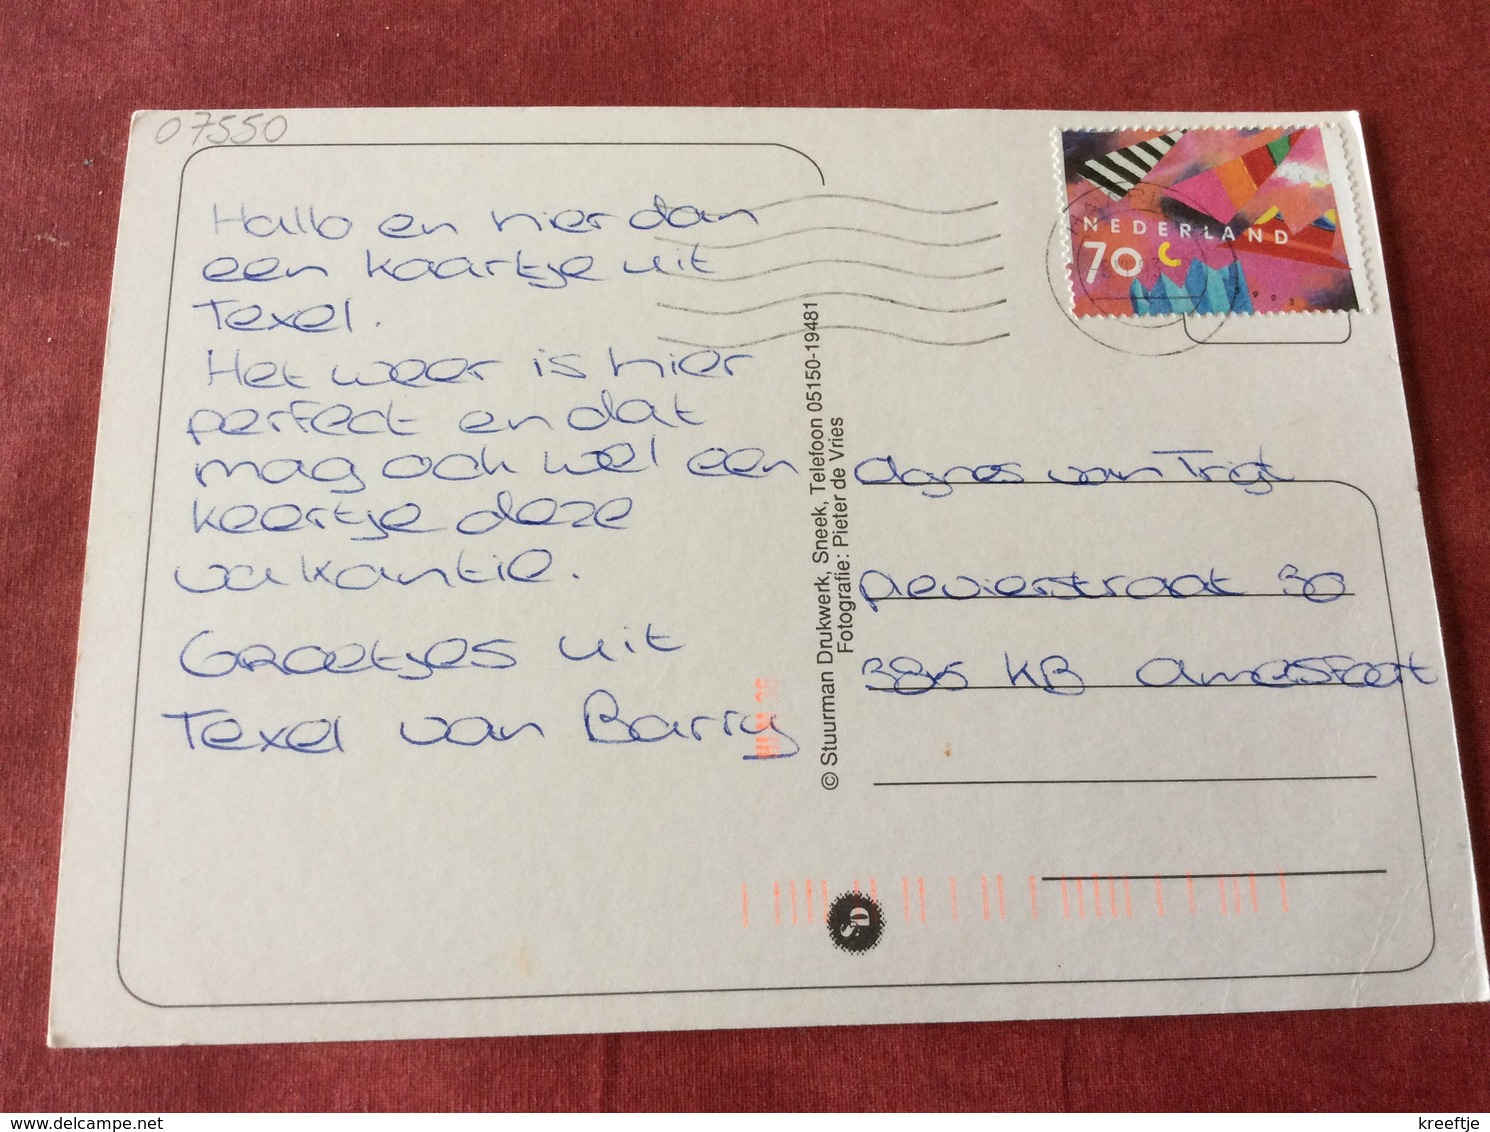 07550
Hallo en hier dan
een kaartje uit
Texel.
Het weer is hier
perfect en dat
mag ook wel een
keertje deze
vakantie.
Groetjes uit
Texel van Barry
NEDERLAND
70c
1993
© Stuurman Drukwerk, Sneek, Telefoon 05150-19481
Fotografie: Pieter de Vries
Agnes van Trigt
plevierstraat 30
KB Amersfoort
SD
www.delcampe.net
kreeftje